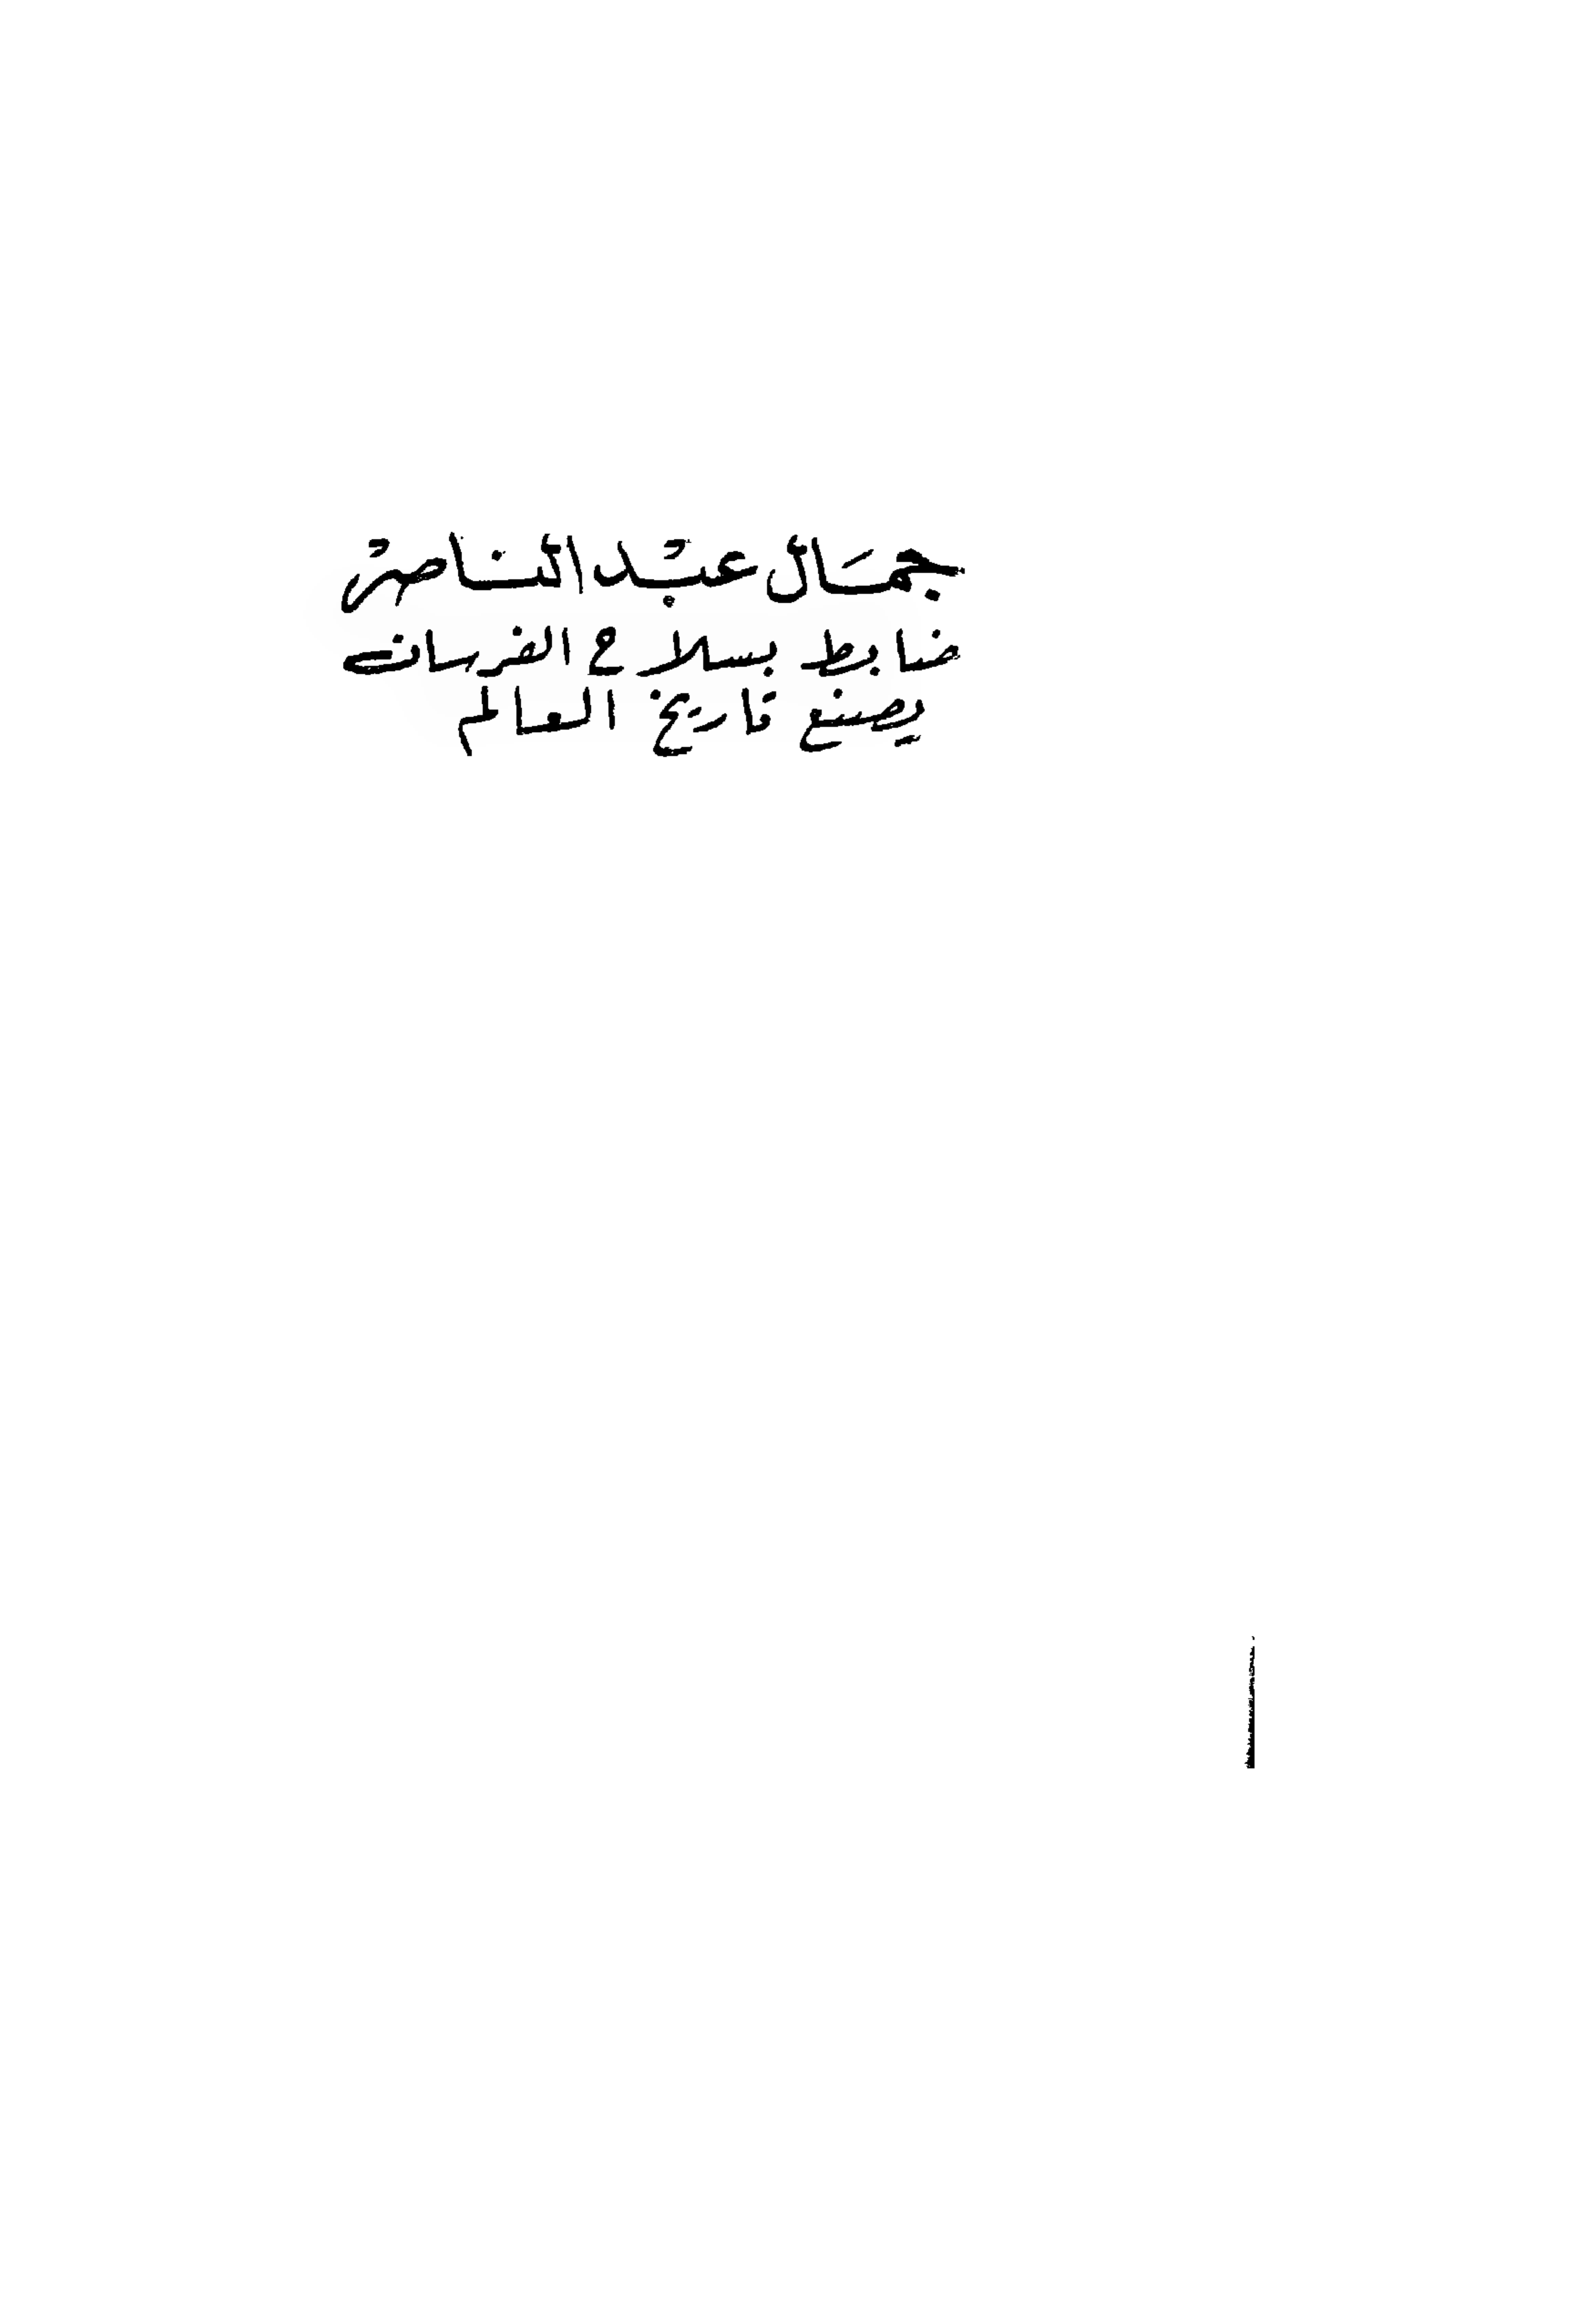 جمال عبد الناصر
ضابط بسلاح الفرسان
يصنع تاريخ العالم